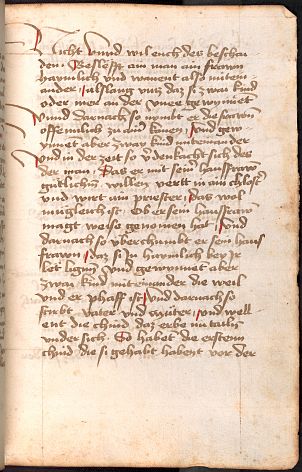 Licht vnnd wil euch des beschai
den Beslefft ain man ain frawn
haymlich vnd wanent also mitein
ander alslang vntz daz si zwai kind
oder mer an der vnee gewynnet
vnnd darnach so nymbt er die frawn
offennlich zu ainer konen vnd gew
ynnet aber zway kind miteinander
vnd in der zeit so v̈denkacht sich des
der man Das er mit seinr hausfrawn
gutlichm willen vertt in ain closter
vnd wirt ain priester das wol
muglich ist Ob er sein hausfraw
magt weise genomen hat vnd
darnach so vberchumbt er sein haus
frawn daz si In haymlich bey Ir
lot ligen vnd gewynnet aber
zway kind miteinander die weil
vnd er phaff ist vnd darnach so
stirbt vater vnd muter vnd well
ent die chind daz erbe mitailn
vnder sich So habet die ersten
chind die si gehabt habent vor der